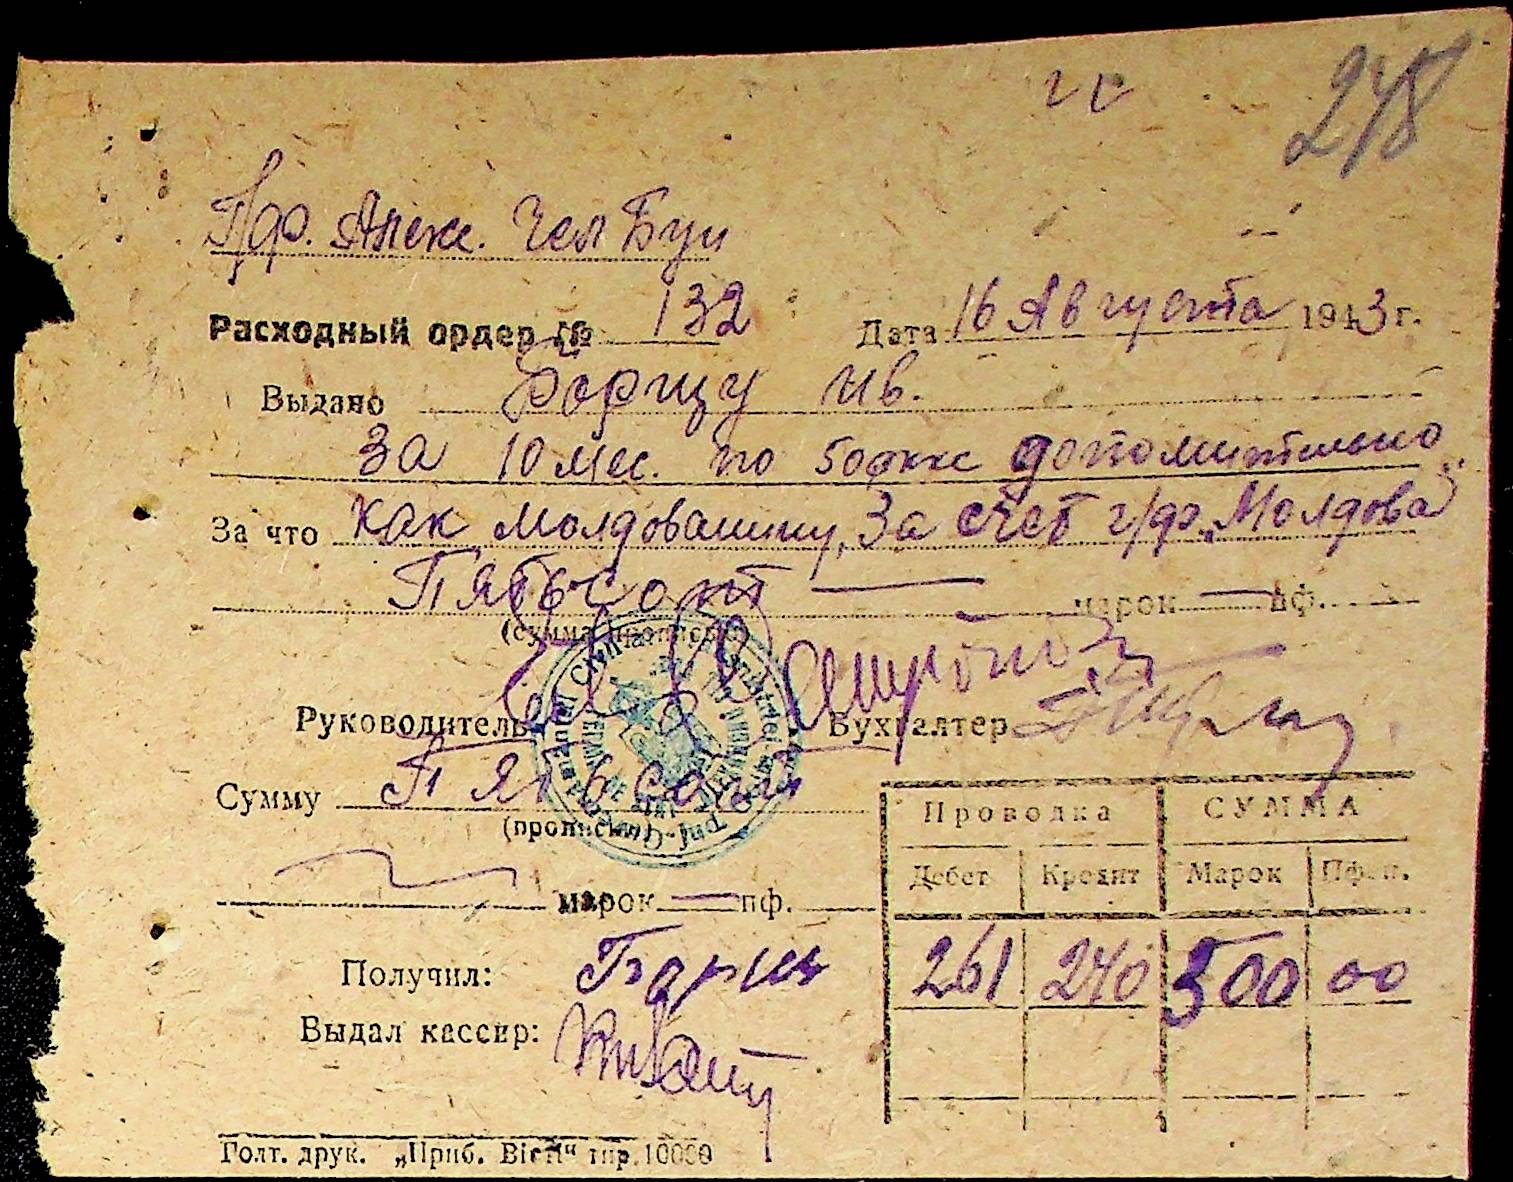 248
Пдр. Алекс. Чел Буи
Расходный ордер № 132 Дата 16 Августа 1943 г.
Выдано Борщу Ив.
за 10 мес. по 50 дополнительно
За что как молдованину, за счет г/др. „Молдова"
Пятьсот — марок — пф.
(сумма прописью)
Руководитель Бухгалтер
Сумму Пятьсот
(прописью)
марок — пф.
Проводка СУММА
Дебет Кредит Марок Пфен.
261 240 500 00
Получил: Борщ
Выдал кассир:
Голт. друк. „Приб. Вісті" тир. 10000